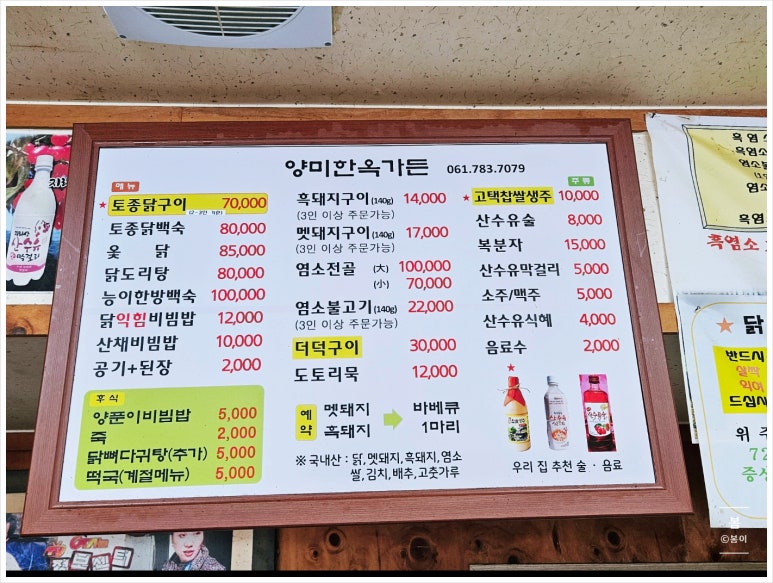 양미한옥가든 061.783.7079
메뉴
★ 토종닭구이 70,000
(2~3인 기준)
토종닭백숙 80,000
옻 닭 85,000
닭도리탕 80,000
능이한방백숙 100,000
닭익힘비빔밥 12,000
산채비빔밥 10,000
공기+된장 2,000
후식
양푼이비빔밥 5,000
죽 2,000
닭뼈다귀탕(추가) 5,000
떡국(계절메뉴) 5,000
흑돼지구이(140g) 14,000
(3인 이상 주문가능)
멧돼지구이(140g) 17,000
(3인 이상 주문가능)
염소전골 (大) 100,000
(小) 70,000
염소불고기(140g) 22,000
(3인 이상 주문가능)
더덕구이 30,000
도토리묵 12,000
예약 멧돼지 흑돼지 바베큐 1마리
※ 국내산 : 닭, 멧돼지, 흑돼지, 염소
쌀, 김치, 배추, 고춧가루
주류
★ 고택찹쌀생주 10,000
산수유술 8,000
복분자 15,000
산수유막걸리 5,000
소주/맥주 5,000
산수유식혜 4,000
음료수 2,000
우리 집 추천 술 · 음료
산수유
막걸리
흑염소
염소
염소
흑염소
흑염소
★ 닭
반드시
익혀
드십시
위
72
증상
©봄이